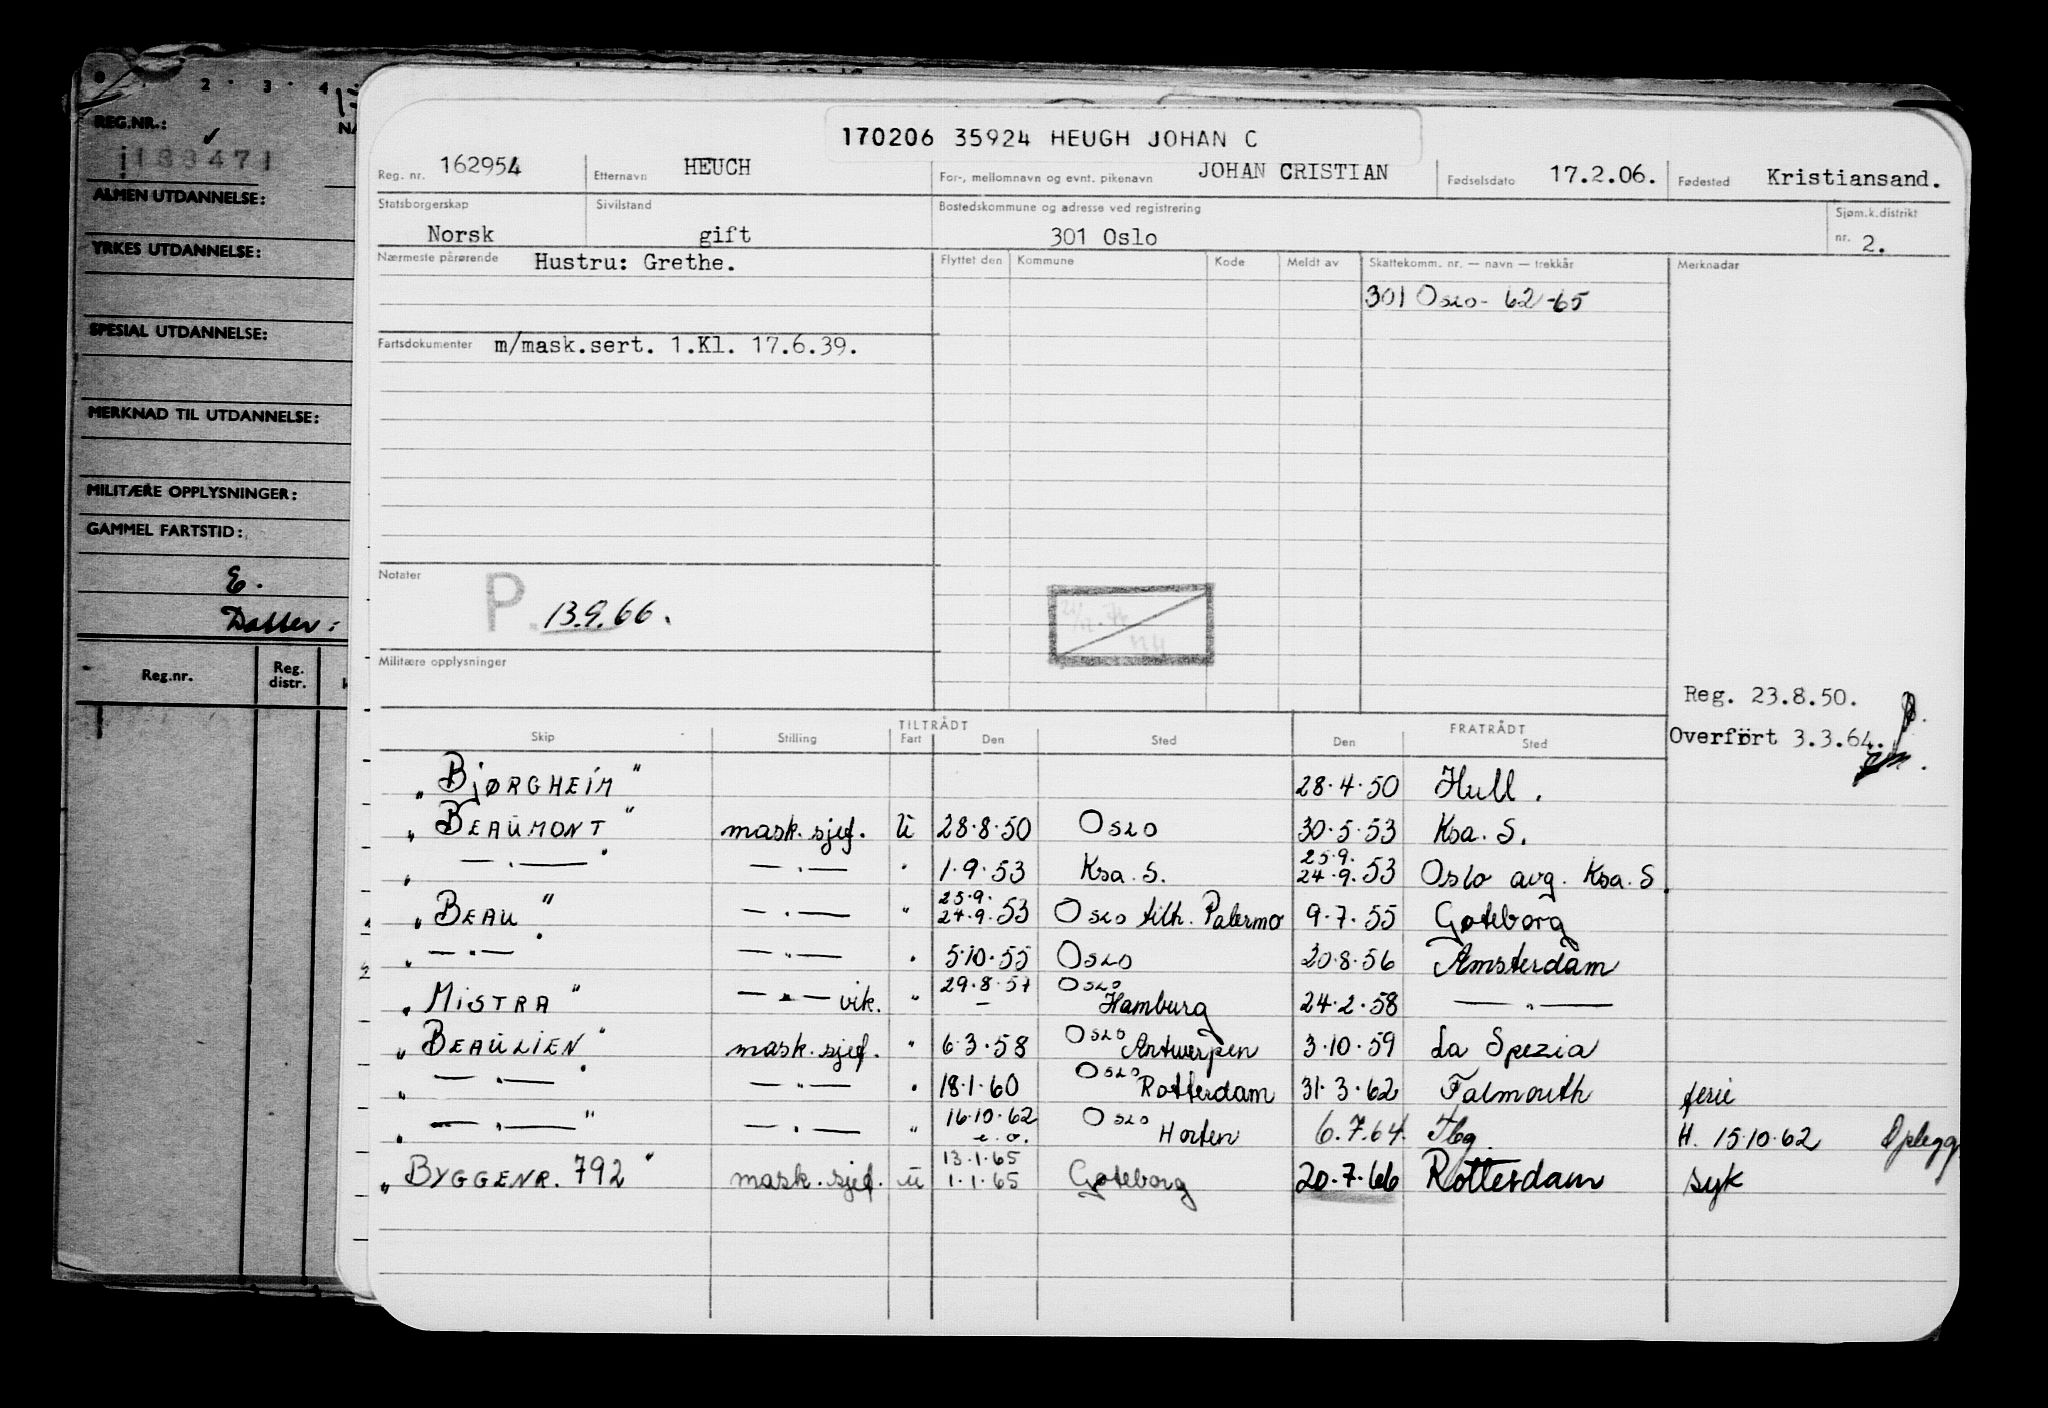 2 · 3 · 4
REG.NR.:
ALMEN UTDANNELSE:
YRKES UTDANNELSE:
SPESIAL UTDANNELSE:
MERKNAD TIL UTDANNELSE:
MILITÆRE OPPLYSNINGER:
GAMMEL FARTSTID:
E.
Datter:
Reg.nr. Reg. distr.
170206 35924 HEUGH JOHAN C
Reg. nr. 162954 Etternavn HEUCH For-, mellomnavn og evnt. pikenavn JOHAN CRISTIAN Fødselsdato 17.2.06. Fødested Kristiansand.
Statsborgerskap Sivilstand Bostedskommune og adresse ved registrering Sjøm.k.distrikt
Norsk gift 301 Oslo nr. 2.
Nærmeste pårørende Hustru: Grethe. Flyttet den Kommune Kode Meldt av Skattekomm. nr. — navn — trekkår Merknader
301 Oslo - 62-65
Fartsdokumenter m/mask.sert. 1.Kl. 17.6.39.
Notater
P. 13.9.66.
Militære opplysninger
Reg. 23.8.50.
Overført 3.3.64.
TILTRÅDT FRATRÅDT
Skip Stilling Fart Den Sted Den Sted
„BJØRGHEIM" 28.4.50 Hull.
„BEAUMONT" mask.sjef. U 28.8.50 Oslo 30.5.53 Ksa. S.
„ — . — " — . — " 1.9.53 Ksa. S. 25.9. 24.9.53 Oslo avg. Ksa. S.
„BEAU" — . — " 25.9. 24.9.53 Oslo tilh. Palermo 9.7.55 Gøteborg
„ — . — " — " — " 5.10.55 Oslo 20.8.56 Amsterdam
„MISTRA" — " — vik. " 29.8.57 — Oslo Hamburg 24.2.58 — " —
„BEAULIEN" mask.sjef. " 6.3.58 Oslo Antwerpen 3.10.59 La Spezia
„ — " — " — " — " 18.1.60 Oslo Rotterdam 31.3.62 Falmouth ferie
„ — . — " — . — " 16.10.62 e.o. Oslo Horten 6.7.64. Tbg. H. 15.10.62 Opplegg
„BYGGENR. 792" mask.sjef. U 13.1.65 1.1.65 Gøteborg 20.7.66 Rotterdam syk